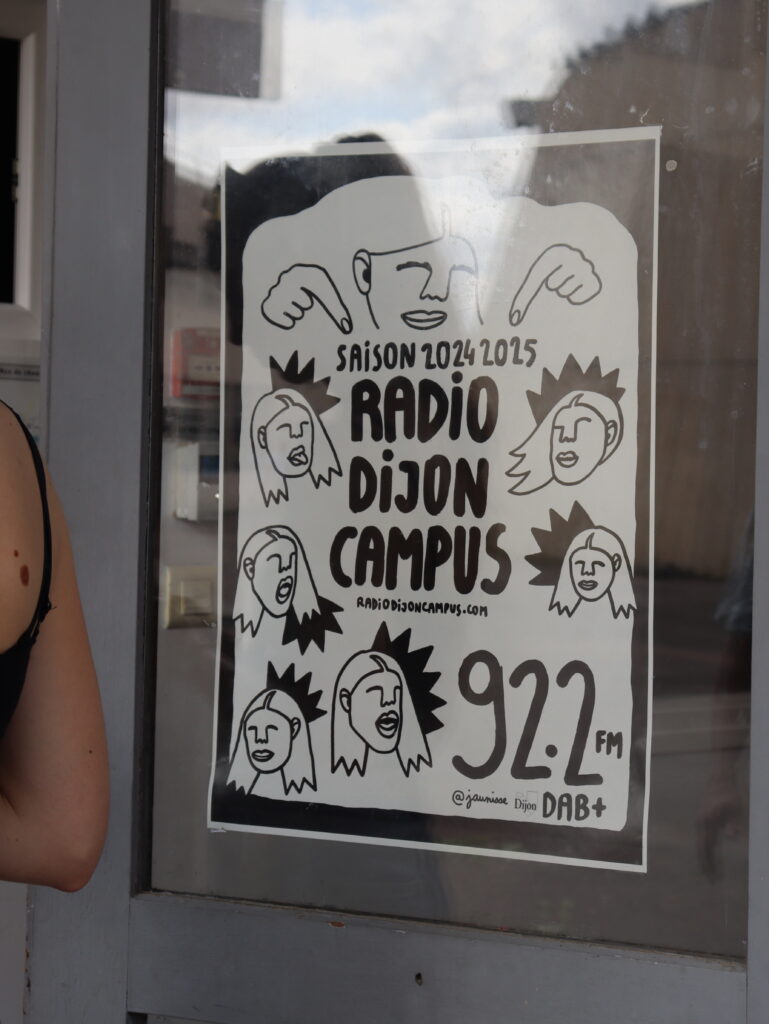 SAISON 2024 2025
RADIO
DIJON
CAMPUS
RADIODIJONCAMPUS.COM
92.2 FM
@jaunisse Dijon DAB+